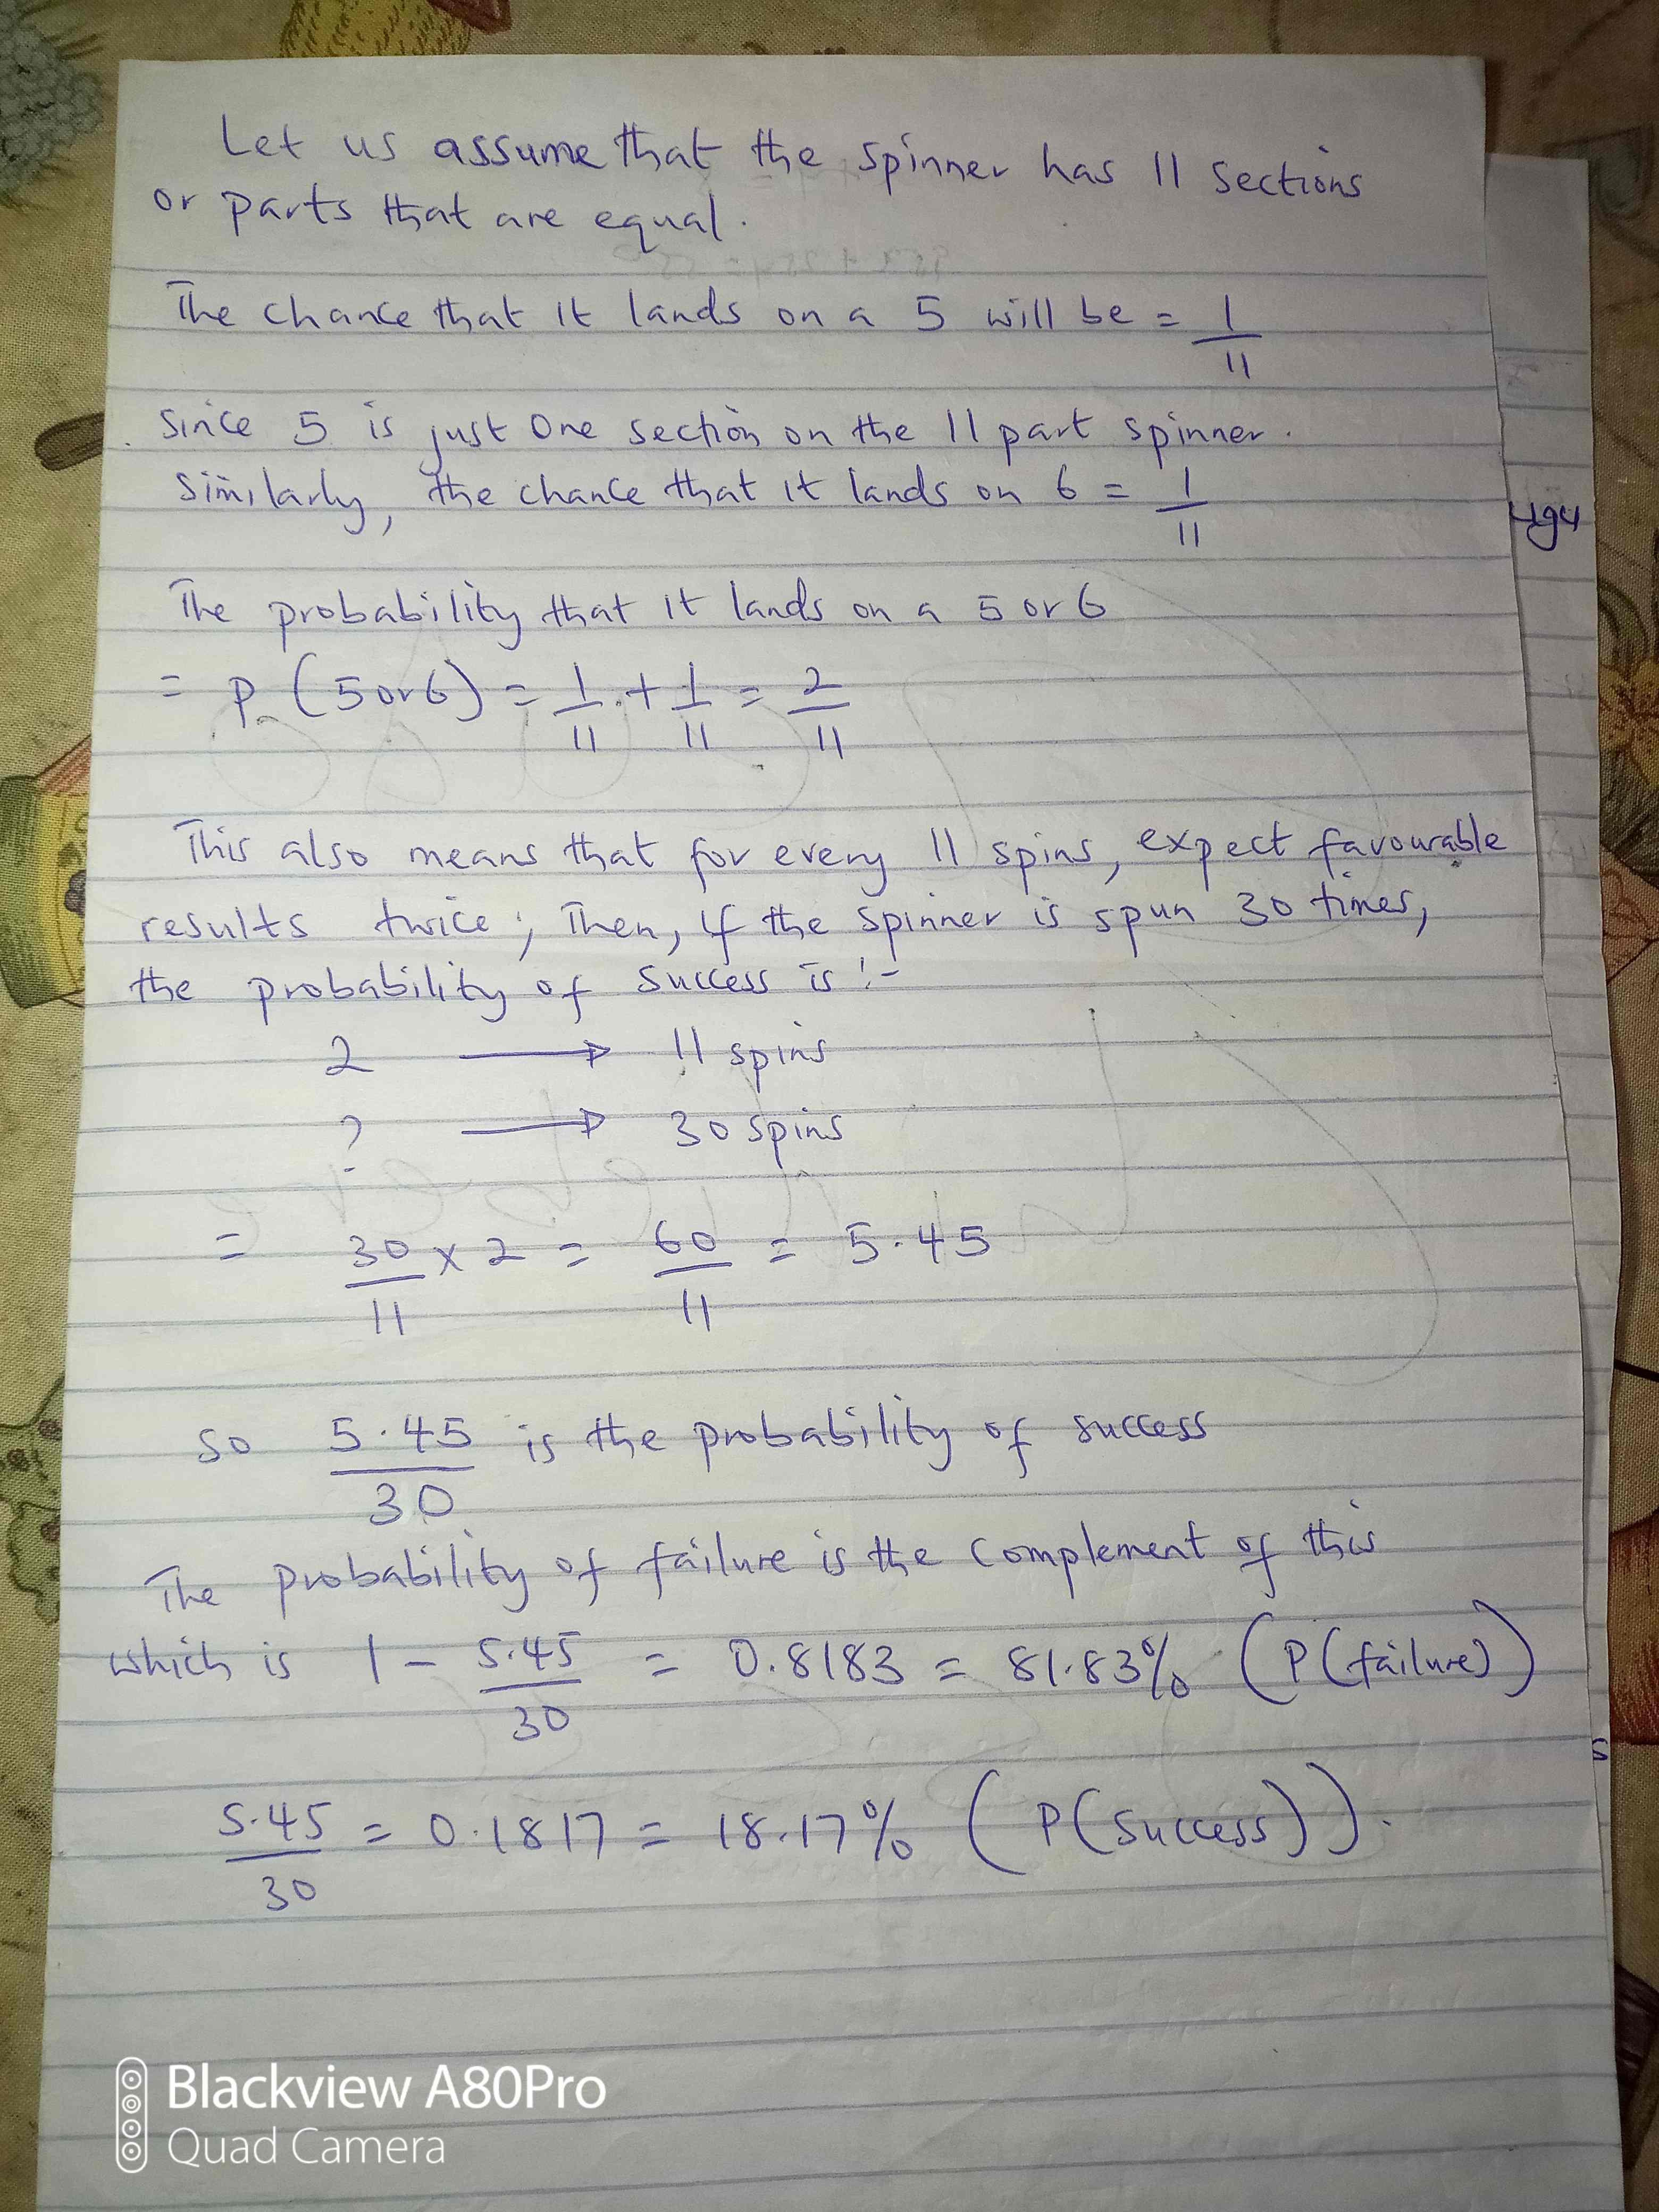 Let us assume that the spinner has 11 sections
or parts that are equal.
The chance that it lands on a 5 will be = 1/11
Since 5 is just one section on the 11 part spinner.
Similarly, the chance that it lands on 6 = 1/11
The probability that it lands on a 5 or 6
= P (5 or 6) = 1/11 + 1/11 = 2/11
This also means that for every 11 spins, expect favourable
results twice; Then, if the spinner is spun 30 times,
the probability of success is :-
2 → 11 spins
? → 30 spins
= 30/11 x 2 = 60/11 = 5.45
So 5.45/30 is the probability of success
The probability of failure is the complement of this
which is 1 - 5.45/30 = 0.8183 = 81.83% (P(failure))
5.45/30 = 0.1817 = 18.17% (P(success)).
Blackview A80Pro
Quad Camera